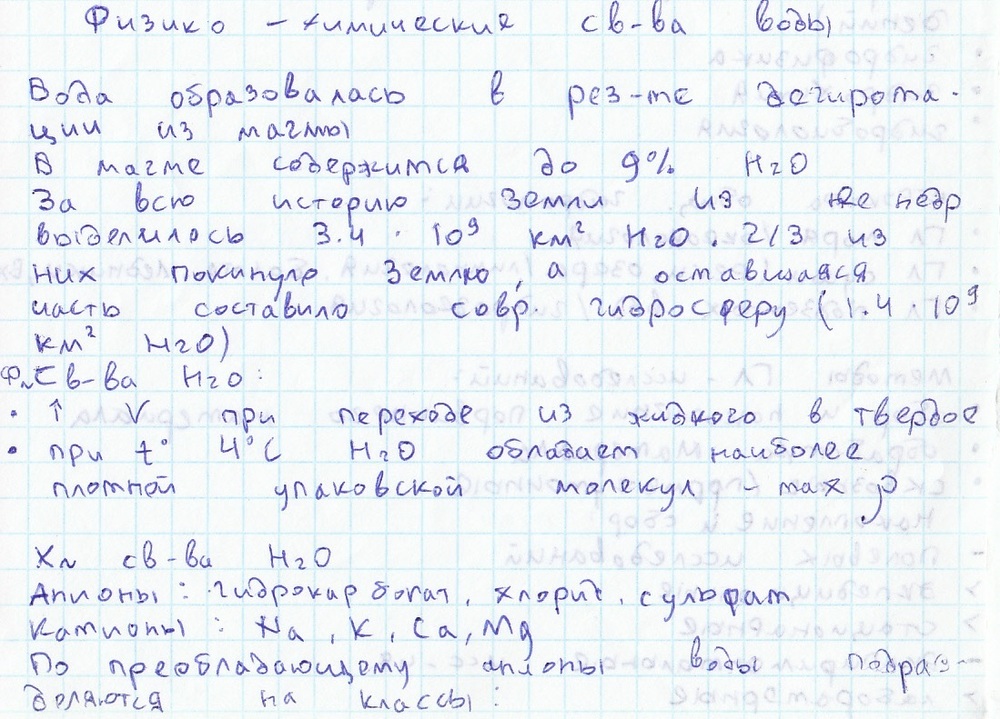 Физико - химические св-ва воды
Вода образовалась в рез-те дегирота-
ции из магмы
В магме содержится до 9% H2O
За всю историю Земли из ее недр
выделилось 3.4 · 10⁹ км² H2O. 2/3 из
них покинуло Землю, а оставшаяся
часть составило совр. гидросферу (1.4 · 10⁹
км² H2O)
Св-ва H2O:
· ↑ V при переходе из жидкого в твердое
· при t° 4°C H2O обладает наиболее
плотной упаковской молекул - max ρ
Хим св-ва H2O
Анионы: гидрокарбонат, хлорид, сульфат
Катионы: Na, K, Ca, Mg
По преобладающему анионы воды подраз-
деляются на классы: